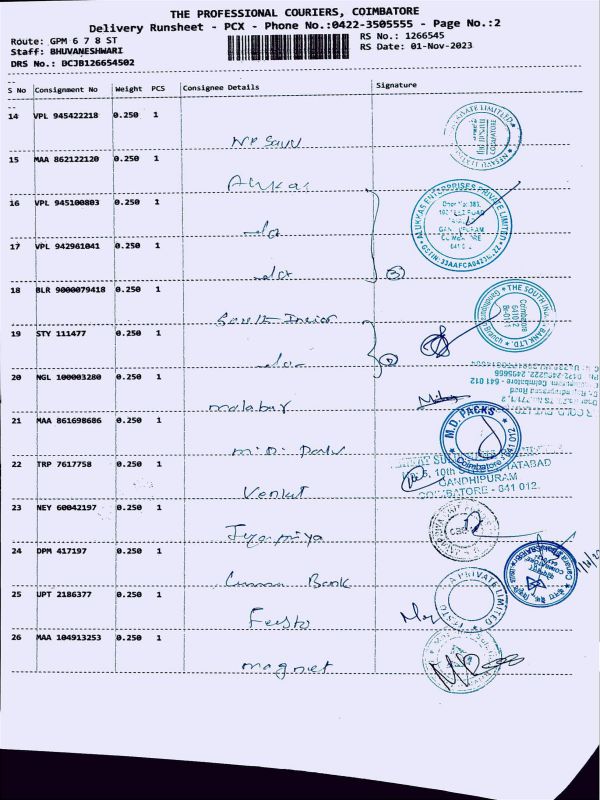 THE PROFESSIONAL COURIERS, COIMBATORE
Delivery Runsheet - PCX - Phone No.:0422-3505555 - Page No.:2
Route: GPM 6 7 8 ST
RS No.: 1266545
Staff: BHUVANESHWARI
RS Date: 01-Nov-2023
DRS No.: BCJB126654502
S No Consignment No Weight PCS Consignee Details Signature
14 VPL 945422218 0.250 1
15 MAA 862122120 0.250 1
16 VPL 945100803 0.250 1
ALUKKAS ENTERPRISES PRIVATE LIMITED
17 VPL 942961041 0.250 1
18 BLR 9000079418 0.250 1
South Indian
THE SOUTH INDIAN BANK LTD.
Coimbatore
641012
19 STY 111477 0.250 1
20 NGL 100003280 0.250 1
malabar
21 MAA 861698686 0.250 1
M.D. PACKS
Coimbatore 641 012
22 TRP 7617758 0.250 1
Venkat
GANDHIPURAM
COIMBATORE - 641 012.
23 NEY 60042197 0.250 1
Jyapriya
24 DPM 417197 0.250 1
Bank
25 UPT 2186377 0.250 1
Festo
PRIVATE LIMITED
26 MAA 104913253 0.250 1
magnet